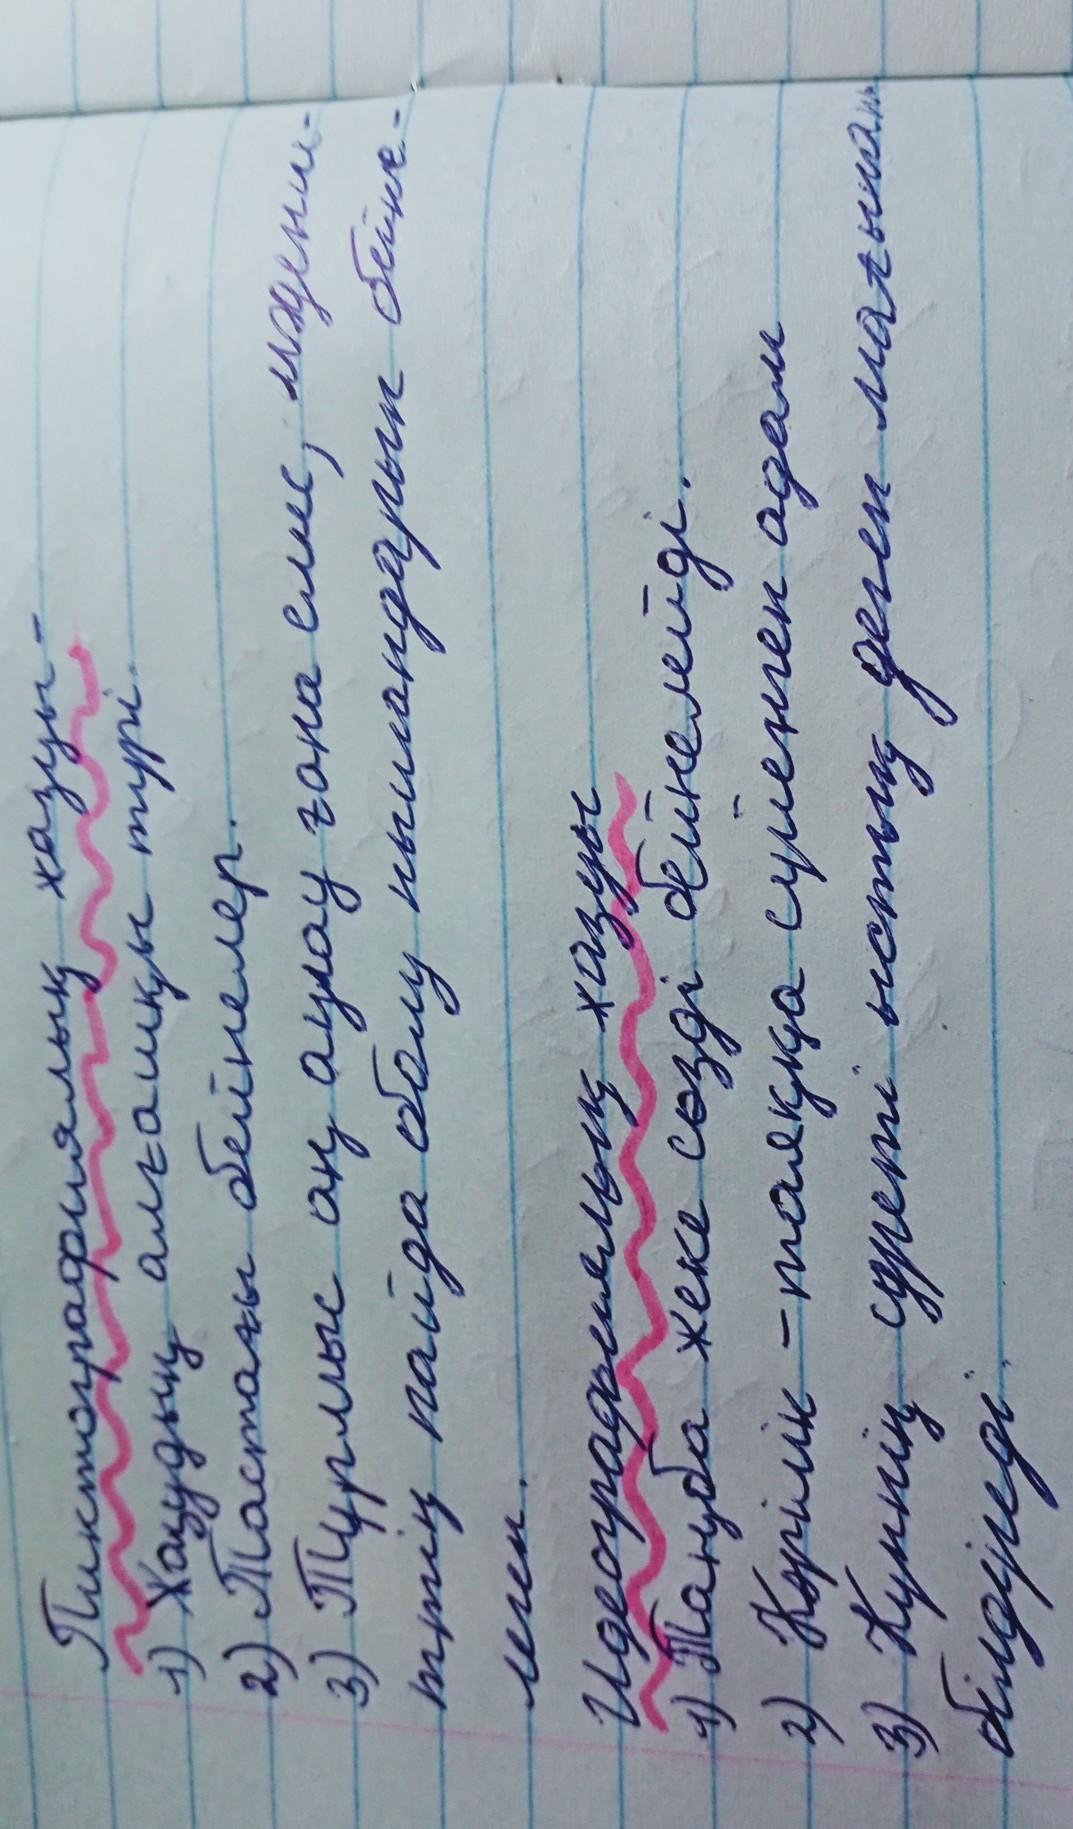 Пиктографиялық жазу -
1) Жазудың алғашқы түрі.
2) Тастағы бейнелер.
3) Тұрмыс аң аулау ғана емес, мәдени-
тің пайда болу нышандарын бейне-
леген.
Идеографиялық жазу
1) Таңба жеке сөзді бейнелейді.
2) Кәрілік - таяққа сүйенген адам
3) Күннің суреті ыстық деген мағынаны
білдіреді.